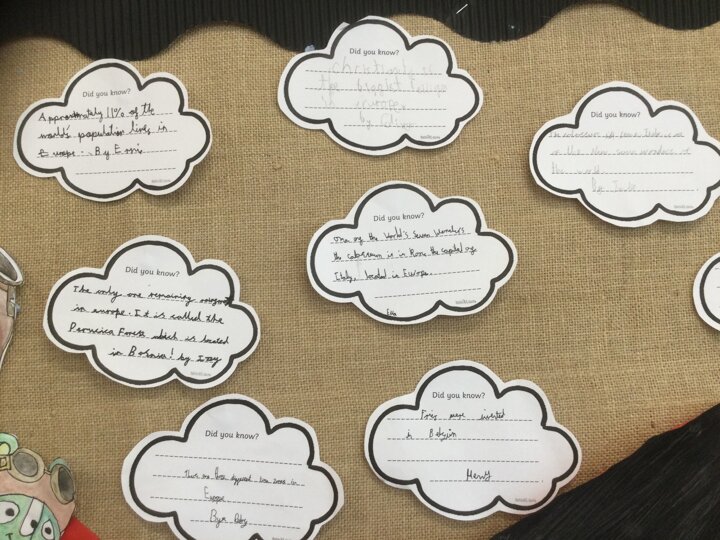 Did you know?
Approximately 11% of the
world's population lives in
Europe. By
Did you know?
Christianity is
the biggest
europe
by
Did you know?
the
in the new seven wonders of
the world
By
Did you know?
One of the World's Seven Wonders
the coloseum is in Rome the capital of
Italy, located in Europe.
Ella
Did you know?
The only one remaining
in europe. It is called the
Perucica Forest which is located
in Bosnia! by
Did you know?
There are four different time zones in
Europe
By
Did you know?
Fries were invented
in
Henry